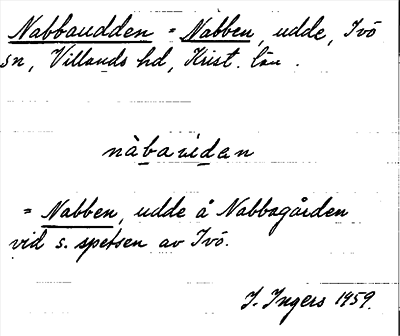 Nabbaudden = Nabben, udde, Ivö
sn, Villands hd, Krist. län.
nàbaúdan
= Nabben, udde å Nabbagården
vid s. spetsen av Ivö.
I. Ingers 1959.